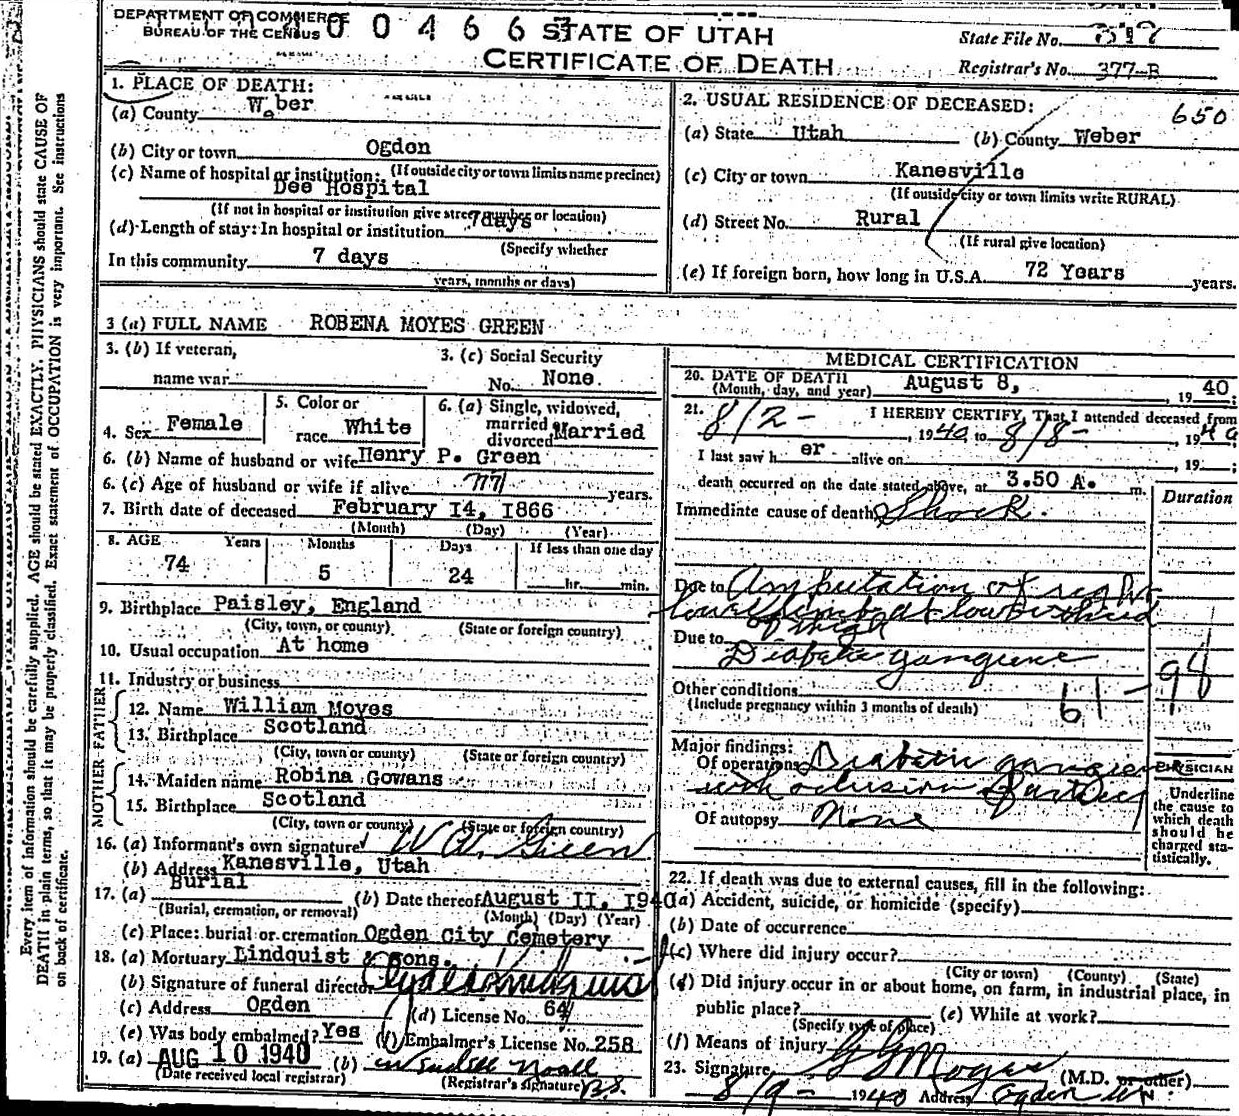 DEPARTMENT OF COMMERCE
BUREAU OF THE CENSUS
0 0 4 6 6
STATE OF UTAH
CERTIFICATE OF DEATH
State File No.
Registrar's No. 377-B
1. PLACE OF DEATH:
(a) County Weber
(b) City or town Ogden
(c) Name of hospital or institution: (If outside city or town limits name precinct)
Dee Hospital
(If not in hospital or institution give street number or location)
(d) Length of stay: In hospital or institution 7days
(Specify whether
In this community 7 days
years, months or days)
2. USUAL RESIDENCE OF DECEASED:
650
(a) State Utah (b) County Weber
(c) City or town Kanesville
(If outside city or town limits write RURAL)
(d) Street No. Rural
(If rural give location)
(e) If foreign born, how long in U.S.A. 72 Years years.
3 (a) FULL NAME ROBENA MOYES GREEN
3. (b) If veteran,
name war
3. (c) Social Security
No. None.
4. Sex Female
5. Color or
race White
6. (a) Single, widowed,
married or
divorced Married
6. (b) Name of husband or wife Henry P. Green
6. (c) Age of husband or wife if alive 77 years.
7. Birth date of deceased February I4, I866
(Month) (Day) (Year)
8. AGE Years Months Days If less than one day
74 5 24 hr. min.
9. Birthplace Paisley, England
(City, town, or county) (State or foreign country)
10. Usual occupation At home
11. Industry or business
FATHER
12. Name William Moyes
13. Birthplace Scotland
(City, town or county) (State or foreign country)
MOTHER
14. Maiden name Robina Gowans
15. Birthplace Scotland
(City, town or county) (State or foreign country)
16. (a) Informant's own signature W W. Green
(b) Address Kanesville, Utah
17. (a) Burial (b) Date thereof August II, I940
(Burial, cremation, or removal) (Month) (Day) (Year)
(c) Place: burial or cremation Ogden City Cemetery
18. (a) Mortuary Lindquist & Sons.
(b) Signature of funeral director Clyde Lindquist
(c) Address Ogden (d) License No. 64
(e) Was body embalmed? Yes (f) Embalmer's License No. 258
19. (a) AUG 10 1940 (b) Noall
(Date received local registrar) (Registrar's signature)
MEDICAL CERTIFICATION
20. DATE OF DEATH
(Month, day, and year) August 8, , 19 40;
21. I HEREBY CERTIFY, That I attended deceased from
8/2- , 1940 to 8/8- , 1940
I last saw h er alive on , 19 ;
death occurred on the date stated above, at 3.50 A. m.
Duration
Immediate cause of death Shock.
Due to Amputation of right
lower limb at lower third
of thigh
Due to
Diabetic gangrene
Other conditions
(Include pregnancy within 3 months of death)
61-98
Major findings:
Of operations Diabetic gangrene
with oclusion of artery
Of autopsy None
PHYSICIAN
Underline
the cause to
which death
should be
charged sta-
tistically.
22. If death was due to external causes, fill in the following:
(a) Accident, suicide, or homicide (specify)
(b) Date of occurrence
(c) Where did injury occur?
(City or town) (County) (State)
(d) Did injury occur in or about home, on farm, in industrial place, in
public place? (e) While at work?
(Specify type of place)
(f) Means of injury
23. Signature (M.D. or other)
8/9- 1940 Address Ogden Ut
Every item of information should be carefully supplied. AGE should be stated EXACTLY. PHYSICIANS should state CAUSE OF
DEATH in plain terms, so that it may be properly classified. Exact statement of OCCUPATION is very important. See instructions
on back of certificate.